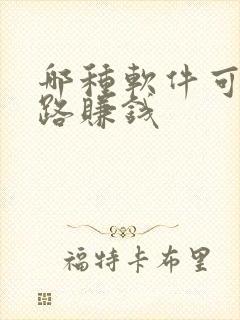 哪種軟件可
路賺錢
福特卡布里